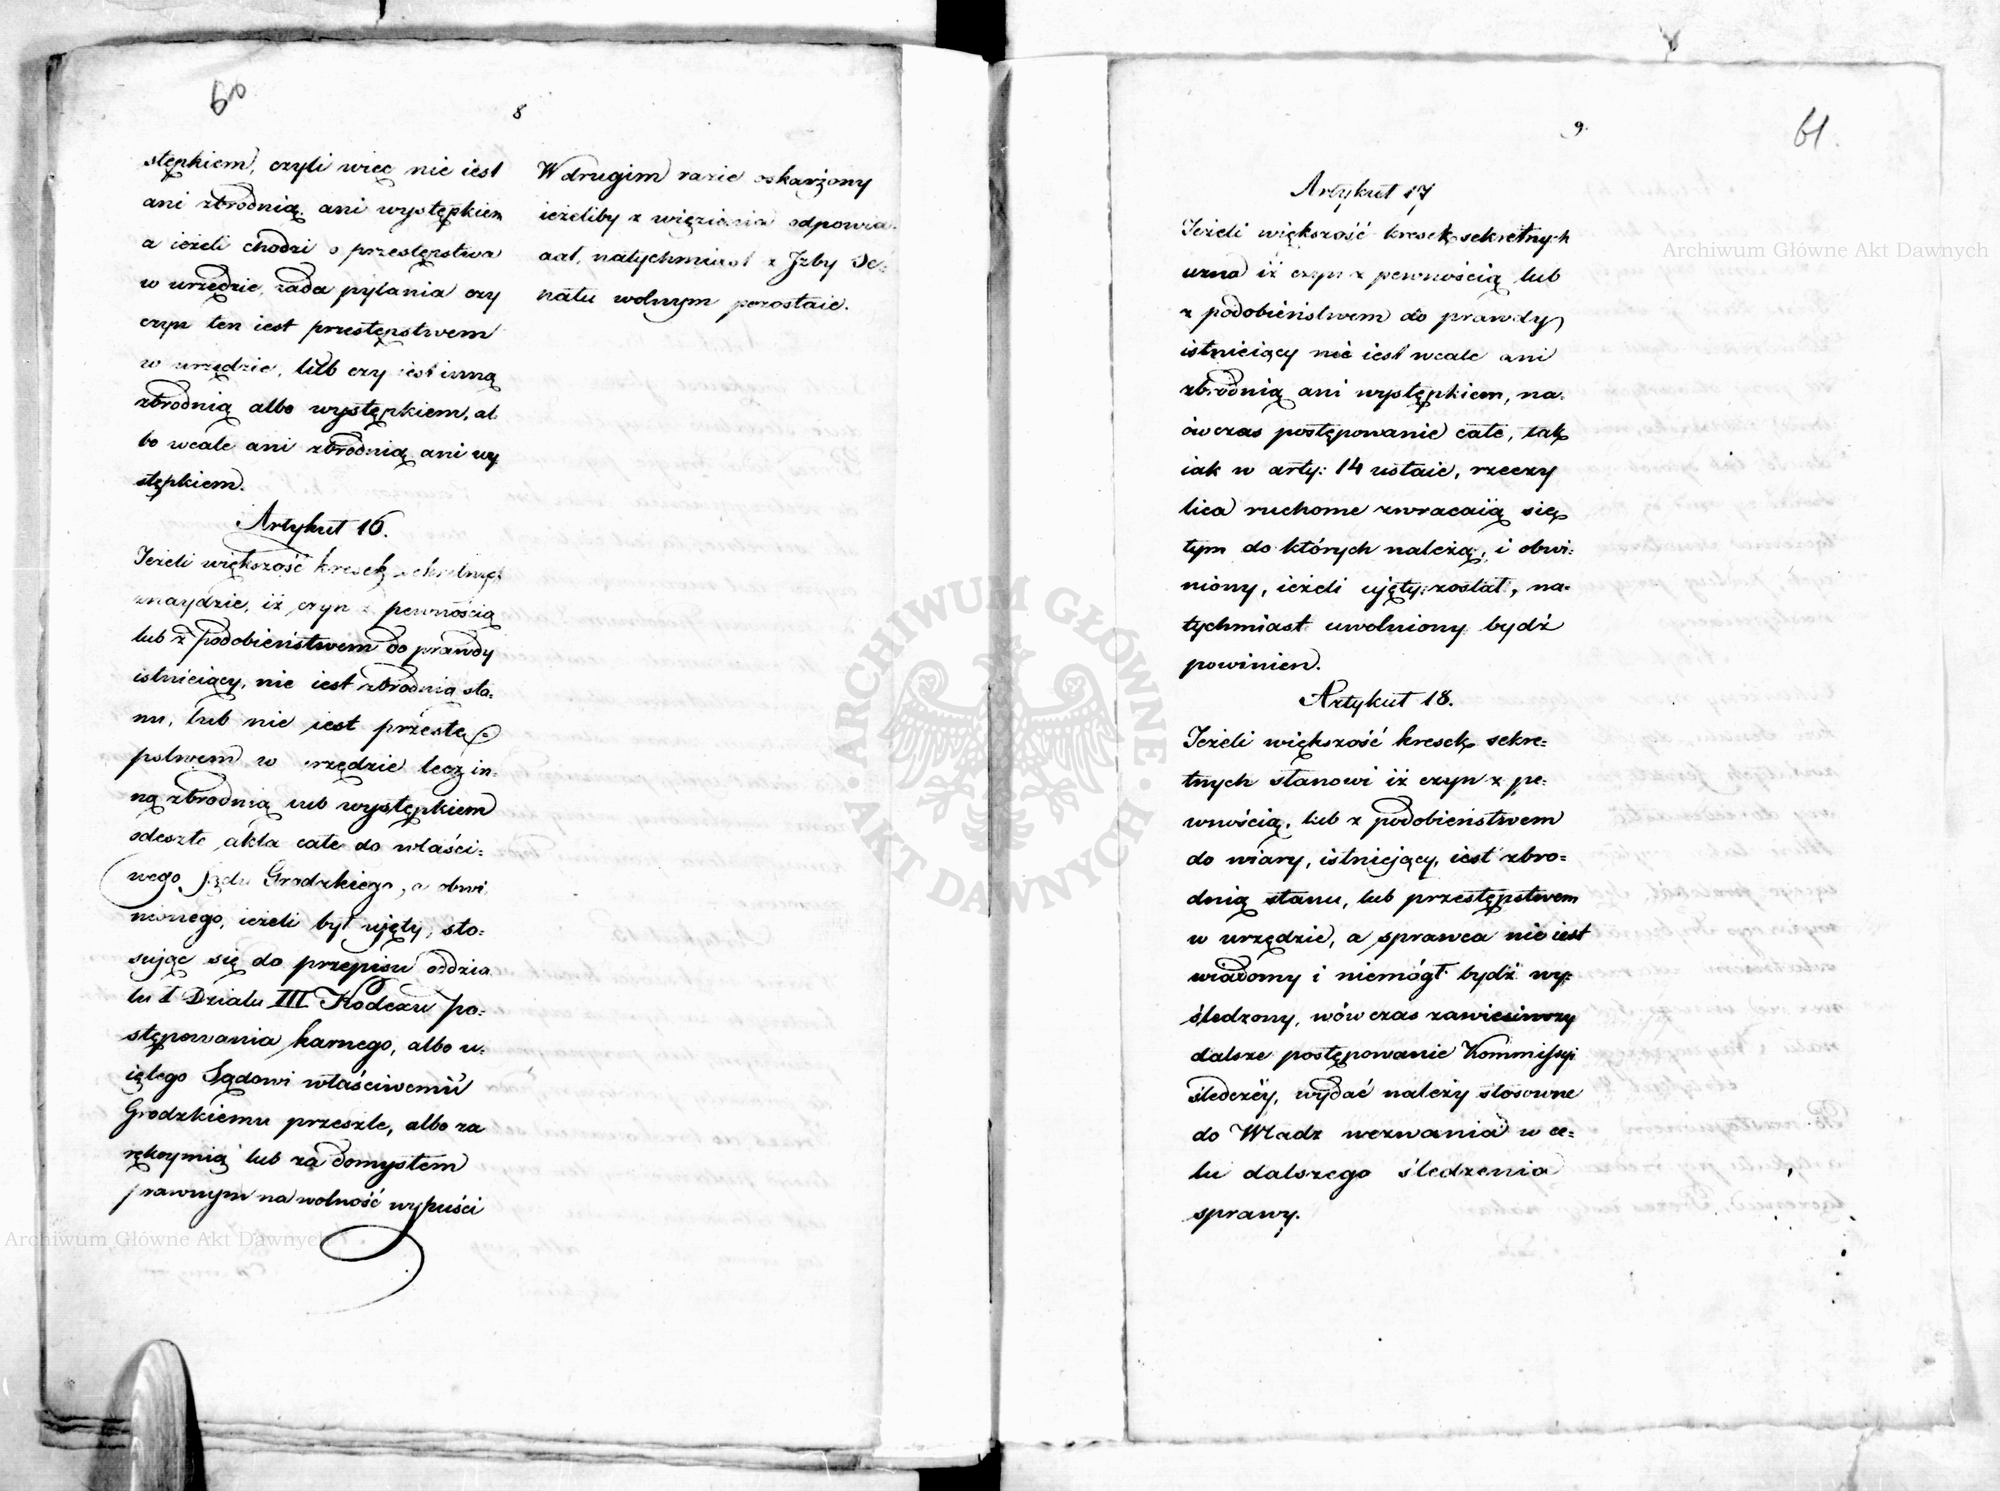 60
8
stępkiem, czyli więc nie iest
ani zbrodnią, ani występkiem
a ieżeli chodzi o przestępstwa
w urzędzie, zada pytania czy
czyn ten iest przestępstwem
w urzędzie, lub czy iest inną
zbrodnią albo występkiem, al
bo wcale ani zbrodnią ani wy
stępkiem.
Artykuł 16.
Jeżeli większość kresek sekretnych
znaydzie, iż czyn z pewnością
lub z podobieństwem do prawdy
istnieiący, nie iest zbrodnią sta-
nu, lub nie iest przestę
pstwem w urzędzie lecz in-
ną zbrodnią lub występkiem
odeszle akta całe do właści-
wego Sądu Grodzkiego, a obwi
nionego, ieżeli był ujęty, sto-
sując się do przepisu oddzia
łu I Działu III Kodexu po-
stępowania karnego, albo u-
iętego Sądowi właściwemu
Grodzkiemu przeszle, albo za
rękoymią lub za domysłem
prawnym na wolność wypuści
W drugim razie oskarżony
ieżeliby z więzienia odpowia-
dał, natychmiast z Jzby Se-
natu wolnym pozostaie.
9.
61.
Artykuł 17
Jeżeli większość kresek sekretnych
uzna iż czyn z pewnością lub
z podobieństwem do prawdy
istnieiący nie iest wcale ani
zbrodnią ani występkiem, na-
ówczas postępowanie całe, tak
iak w arty: 14 ustaie, rzeczy
lica ruchome zwracaią się
tym do których należą, i obwi-
niony, ieżeli ujęty został, na-
tychmiast uwolniony bydź
powinien.
Artykuł 18.
Jeżeli większość kresek sekre-
tnych stanowi iż czyn z pe-
wnością, lub z podobieństwem
do wiary, istniejący, iest zbro-
dnią stanu, lub przestępstwem
w urzędzie, a sprawca nie iest
wiadomy i niemógł bydź wy-
śledzony, wówczas zawiesiwszy
dalsze postępowanie Kommissyi
śledczéy, wydać należy stosowne
do Władz wezwania w ce-
lu dalszego śledzenia
sprawy.
Archiwum Główne Akt Dawnych
Archiwum Główne Akt Dawnych
ARCHIWUM GŁÓWNE
AKT DAWNYCH